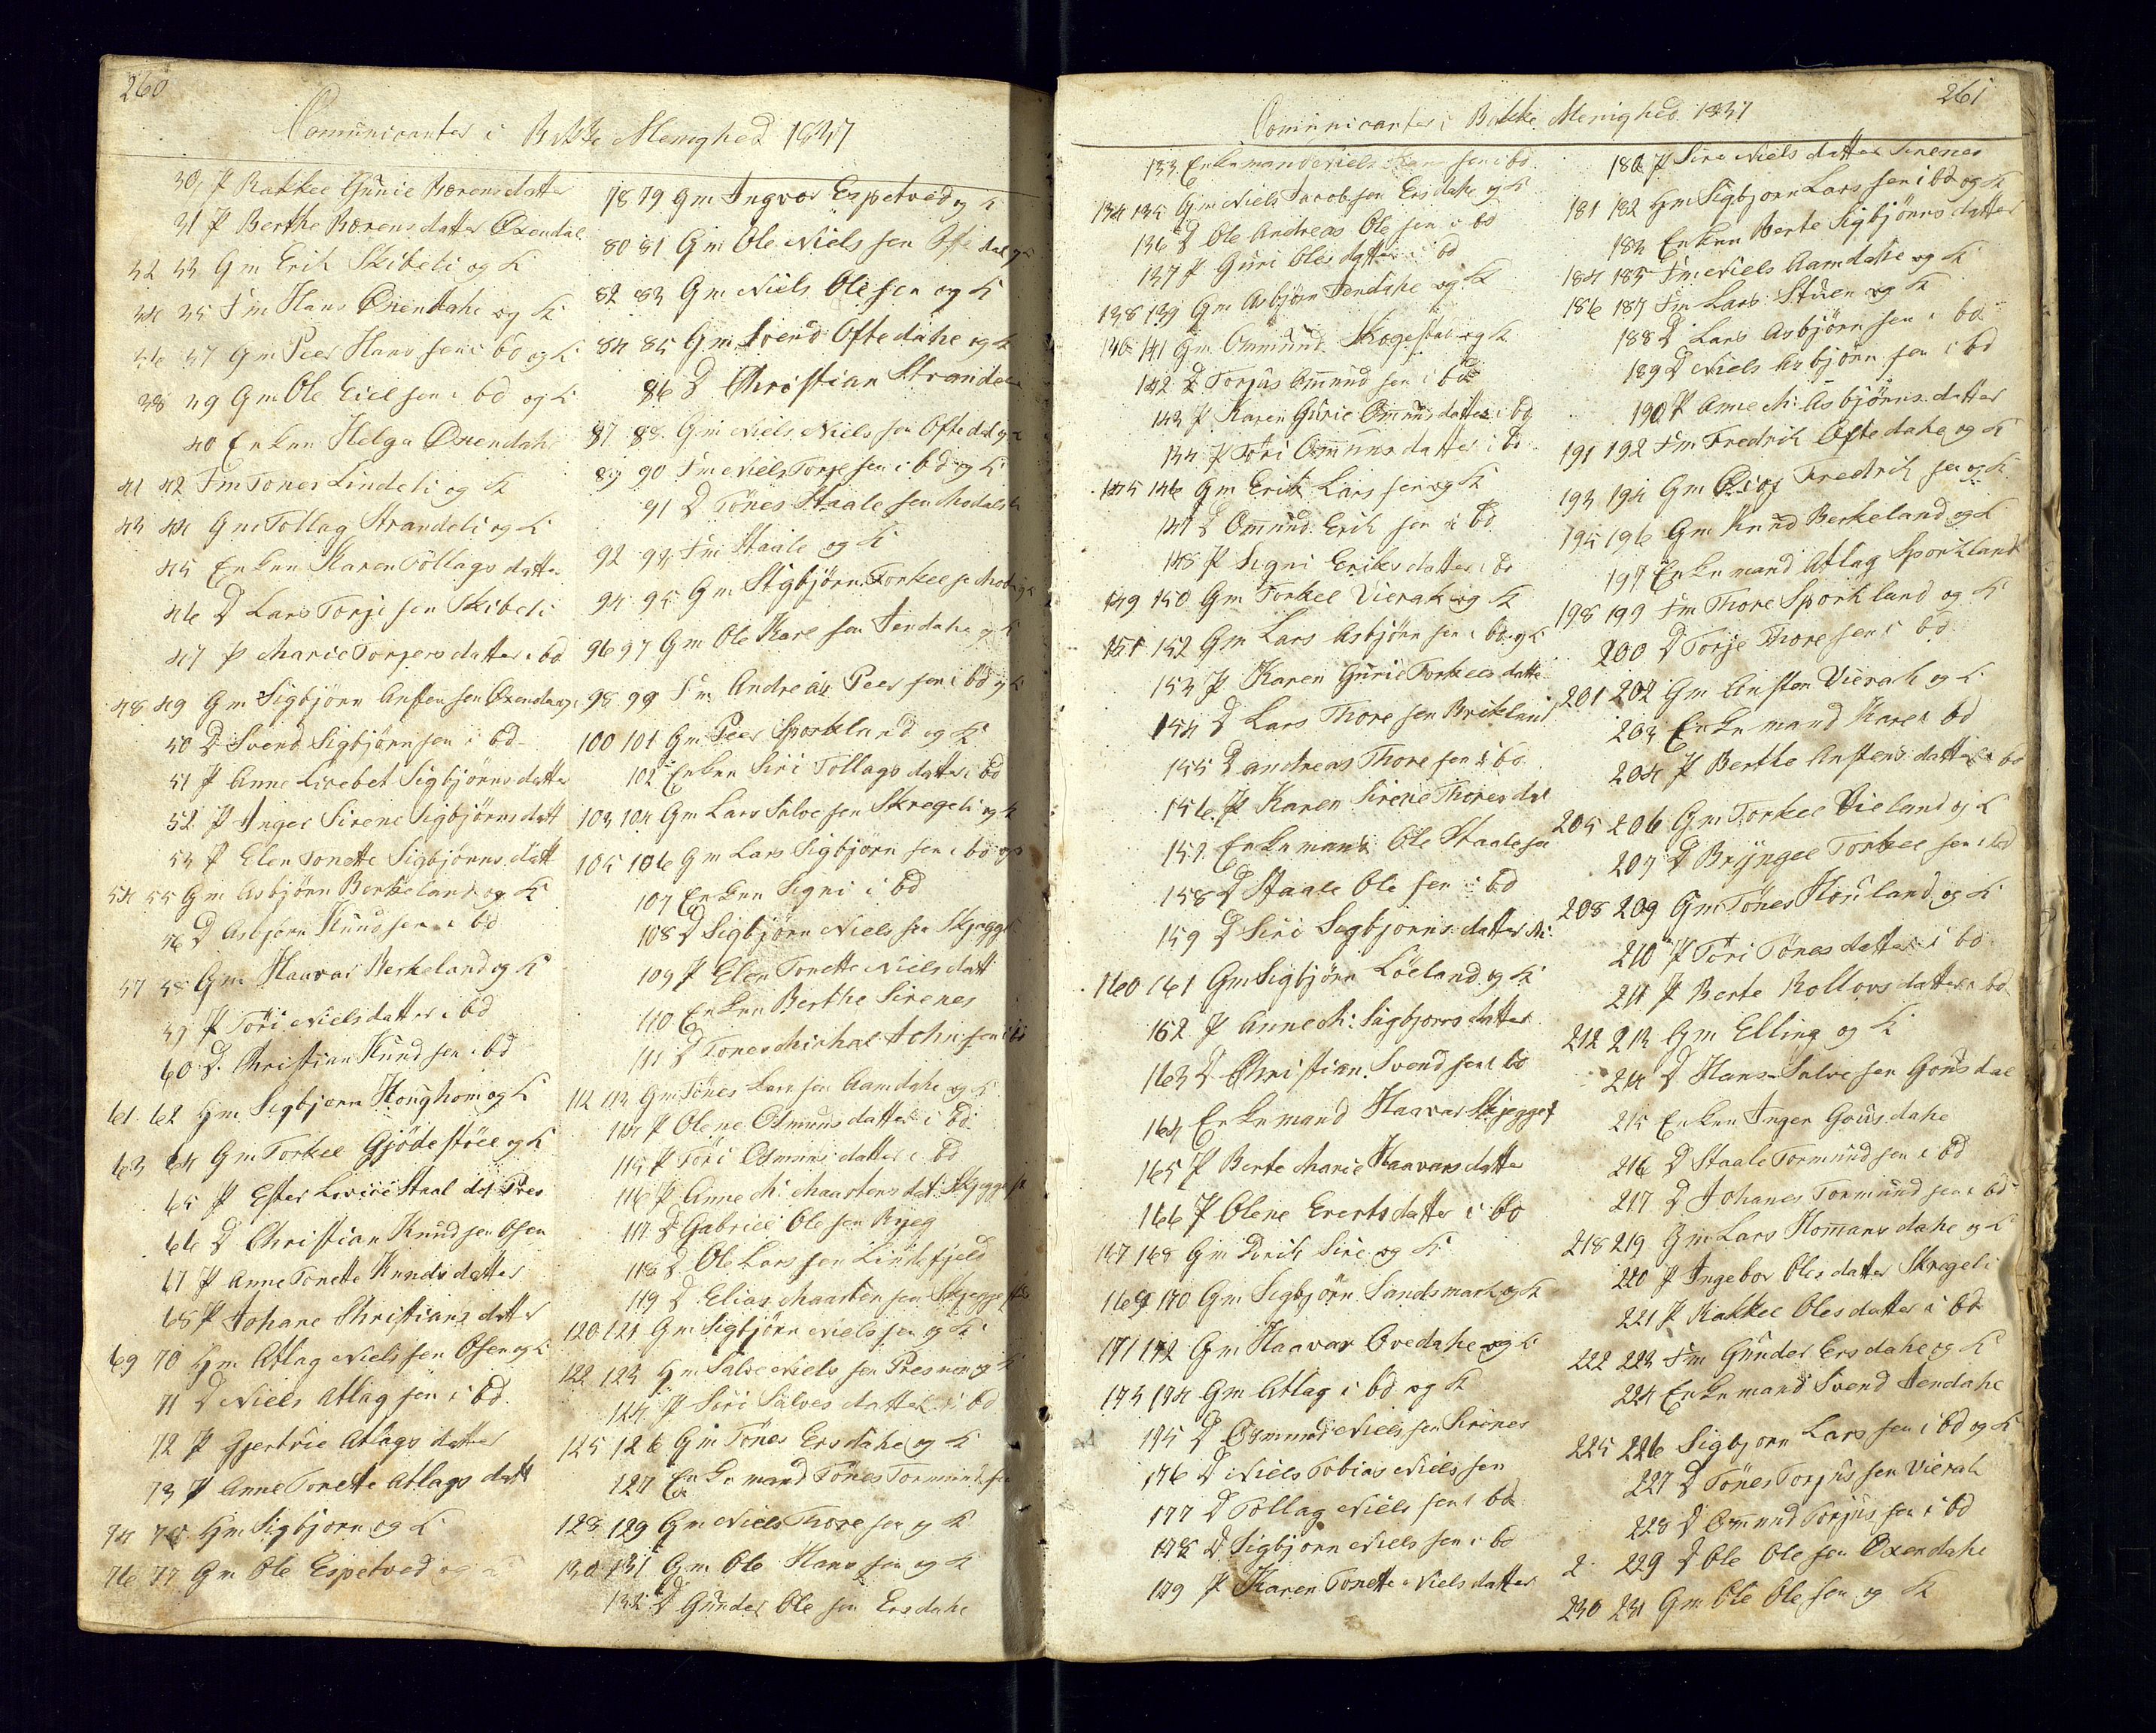 260
Comunicanter i Bakke Menighed 1837
30 P Rakkel Gurie Børensdatter
31 P Berthe Børensdatter Øxendal
32 33 Gm Erik Skibeli og K
34 35 Fm Hans Øxendahl og K
36 37 Gm Peer Hans sen i bd og K
38 39 Gm Ole Eiel sen i bd og K
40 Enken Helga Øxendahl
41 42 Fm Tønes Lindeli og K
43 44 Gm Tollag Strandeli og K
45 Enken Karen Tollags datter
46 D Lars Torje sen Skibeli
47 P Marie Torjers datter i bd
48 49 Gm Sigbjørn Ansten sen Øxendal og K
50 D Svend Sigbjørn sen i bd
51 P Anne Lisebet Sigbjørns datter
52 P Inger Sirene Sigbjørns datt
53 P Elen Tonette Sigbjørns datt
54 55 Gm Asbjørn Berkeland og K
56 D Asbjørn Knud sen i bd
57 58 Gm Haavar Berkeland og K
59 P Tori Nielsdatter i bd
60 D Christian Knud sen i bd
61 62 Hm Sigbjørn Houghom og K
63 64 Gm Torkel Gjødestøel og K
65 P Ester Lovise Staal dat Pres
66 D Christian Knud sen Osen
67 P Anne Tonette Knuds datter
68 P Johane Christians datter
69 70 Hm Atlag Niels sen Osen og K
71 D Niels Atlag sen i bd
72 P Gjertrie Atlags datter
73 P Anne Tonette Atlags datt
74 75 Hm Sigbjørn og K
76 77 Gm Ole Espetved og K
78 79 Gm Ingvor Espetved og K
80 81 Gm Ole Niels sen Oftedal og K
82 83 Gm Niels Ole sen og K
84 85 Gm Svend Oftedahl og K
86 D Christian Strandeli
87 88 Gm Niels Niels sen Oftedal og K
89 90 Fm Niels Torje sen i bd og K
91 D Tönes Staale sen Modalsli
92 93 Fm Staale og K
94 95 Gm Sigbjørn Torkel s Mod og K
96 97 Gm Ole Kare sen Jendahl og K
98 99 Fm Andreas Peer sen i bd og K
100 101 Gm Peer Sporkland og K
102 Enken Siri Tollags datter i bd
103 104 Gm Lars Salve sen Skregeli og K
105 106 Gm Lars Sigbjørn sen i bd og K
107 Enken Signi i bd
108 D Sigbjørn Niels sen Skjegge
109 P Elen Tonette Niels datt
110 Enken Berthe Sirenes
111 D Tones Michal John sen i bd
112 113 Gm Tönes Lars sen Aamdahl og K
114 P Olene Osmunds datter i bd
115 P Töri Osmuns datter i bd
116 P Anne M: Maartens dat: Skjegge
117 D Gabriel Ole sen Ryeg
118 D Ole Lars sen Lindefjeld
119 D Elias Maarten sen Skjegge
120 121 Gm Sigbjørn Niels sen og K
122 123 Hm Salve Niels sen Presnes og K
124 P Siri Salves datter i bd
125 126 Gm Tönes Ersdahl og K
127 Enkemand Tönes Tormund sen
128 129 Gm Niels Thore sen og K
130 131 Gm Ole Hans sen og K
132 D Gunder Ole sen Ersdahl
261
Comunicanter i Bakke Menighed 1837
133 Enkemand Niels sen i bd
134 135 Gm Niels Jacob sen Ersdahl og K
136 D Ole Andreas Ole sen i bd
137 P Guri Oles datter i bd
138 139 Gm Asbjørn Jendahl og K
140 141 Gm Ommund Skogestad og K
142 D Torjus Omund sen i bd
143 P Karen Gurie Omuns datter i bd
144 P Tori Omuns datter i bd
145 146 Gm Erik Lars sen og K
147 D Omund Erik sen i bd
148 P Signi Eriks datter i bd
149 150 Gm Torkel Vierak og K
151 152 Gm Lars Asbjørn sen i bd og K
153 P Karen Gurie Torkels datter
154 D Lars Thore sen Brikland
155 D Andreas Thore sen i bd
156 P Karen Sirene Thores dat
157 Enkemand Ole Staale sen
158 D Staale Ole sen i bd
159 D Siri Sigbjørns datter
160 161 Gm Sigbjørn Löeland og K
162 P Anne M: Sigbjørns datter
163 D Christian Svend sen i bd
164 Enkemand Haavar Skjeggest
165 P Berte Marie Haavars datter
166 P Olene Everts datter i bd
167 168 Gm Dirik Sire og K
169 170 Gm Sigbjørn Sandsmark og K
171 172 Gm Haavar Ovedahl og K
173 174 Gm Atlag i bd og K
175 D Osmund Niels sen Sirenes
176 D Niels Tobias Niels sen
177 D Tollag Niels sen i bd
178 D Sigbjørn Niels sen i bd
179 P Karen Tonette Niels datter
180 P Siri Niels datter Sirenes
181 182 Hm Sigbjørn Lars sen i bd og K
183 Enken Berte Sigbjørns datter
184 185 Fm Niels Aamdahl og K
186 187 Fm Lars Stuen og K
188 D Lars Asbjørn sen i bd
189 D Niels Asbjørn sen i bd
190 P Anne M: Asbjørns datter
191 192 Fm Fredrik Oftedahl og K
193 194 Gm Fredrik sen og K
195 196 Gm Knud Berkeland og K
197 Enkemand Atlag Sporkland
198 199 Fm Thore Sporkland og K
200 D Torje Thore sen i bd
201 202 Gm Ansten Vierak og K
203 Enkemand Kare i bd
204 P Berthe Anstens datter i bd
205 206 Gm Torkel Vieland og K
207 D Bryngel Torkel sen i bd
208 209 Gm Tönes Houland og K
210 P Töri Tönes datter i bd
211 P Berte Rollovs datter i bd
212 213 Gm Elling og K
214 D Hans Salve sen Gousdal
215 Enken Inger Gousdahl
216 D Staale Tormund sen i bd
217 D Johanes Tormund sen i bd
218 219 Gm Lars Homansdahl og K
220 P Ingebor Oles datter Skregeli
221 P Rakkel Oles datter i bd
222 223 Fm Gunder Ersdahl og K
224 Enkemand Svend Jendahl
225 226 Sigbjørn Lars sen i bd og K
227 D Tönes Torjus sen Vierak
228 D Omund Torjus sen i bd
2 229 D Ole Ole sen Oxendahl
230 231 Gm Ole Ole sen og K